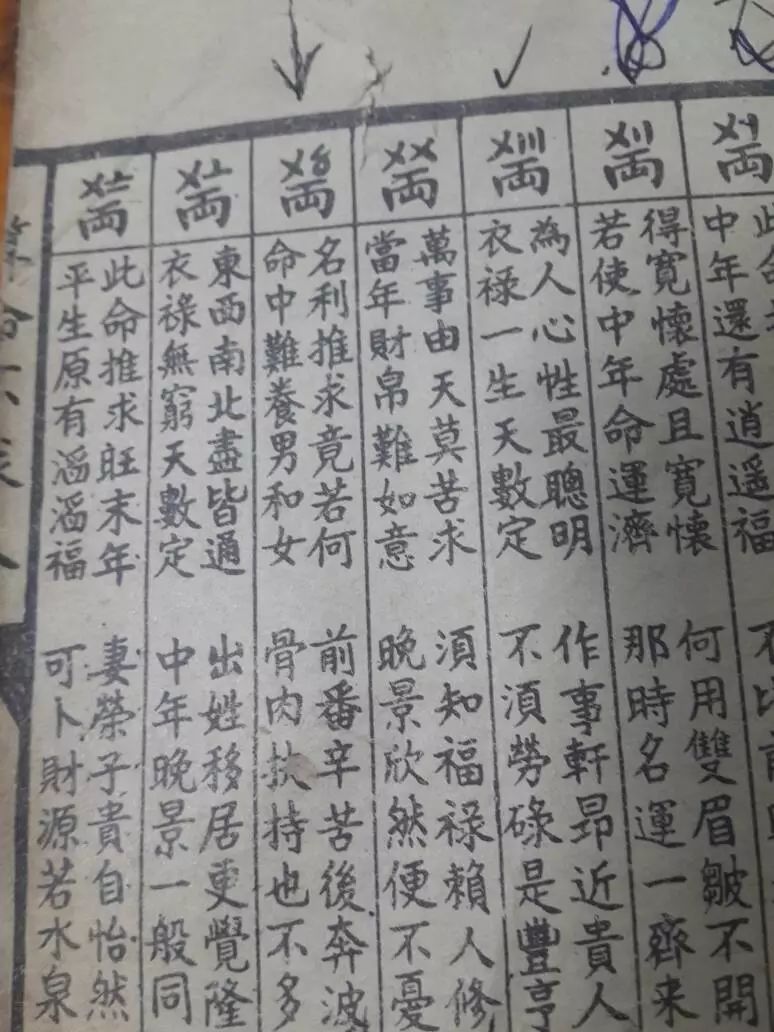 〤〡両
此命
中年還有逍遙福 不比前
〤〢両
得寬懷處且寬懷 何用雙眉皺不開
若使中年命運濟 那時名運一齊来
〤〣両
為人心性最聰明 作事軒昂近貴人
衣禄一生天數定 不須勞碌是豐亨
〤〤両
萬事由天莫苦求 須知福禄賴人修
當年財帛難如意 晚景欣然便不憂
〤〥両
名利推求竟若何 前番辛苦後奔波
命中難養男和女 骨肉扶持也不多
〤〦両
東西南北盡皆通 出姓移居更覺隆
衣禄無窮天數定 中年晚景一般同
〤〧両
此命推求旺末年 妻榮子貴自怡然
平生原有滔滔福 可卜財源若水泉